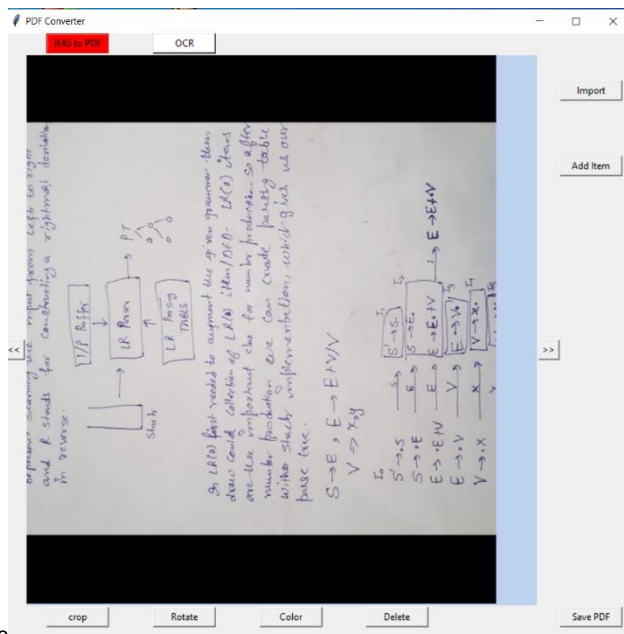 PDF Converter
IMG to PDF
OCR
Import
Add Item
<<
>>
represent scanning the input from left to right
and R stands for constructing a rightmost derivation
in reverse.
I/P Buffer
LR Parser
PT
LR Parsing
TABLE
Stack
In LR(0) first needed to augment the given grammer then
draw collection of LR(0) item/DFD - LR(0) items
are the important one for number production. so after
number production we can create parsing table
with stack implementation, which gives us our
parse tree.
S→E, E→E+V/V
V→x,y
I0
I1
S'→.S
S
S'→S.
I2
S→.E
E
S→E.
E→.E+V
E
E→E.+V
+
E→E+V
I3
E→.V
V
E→V.
I4
V→.X
X
V→X.
crop
Rotate
Color
Delete
Save PDF